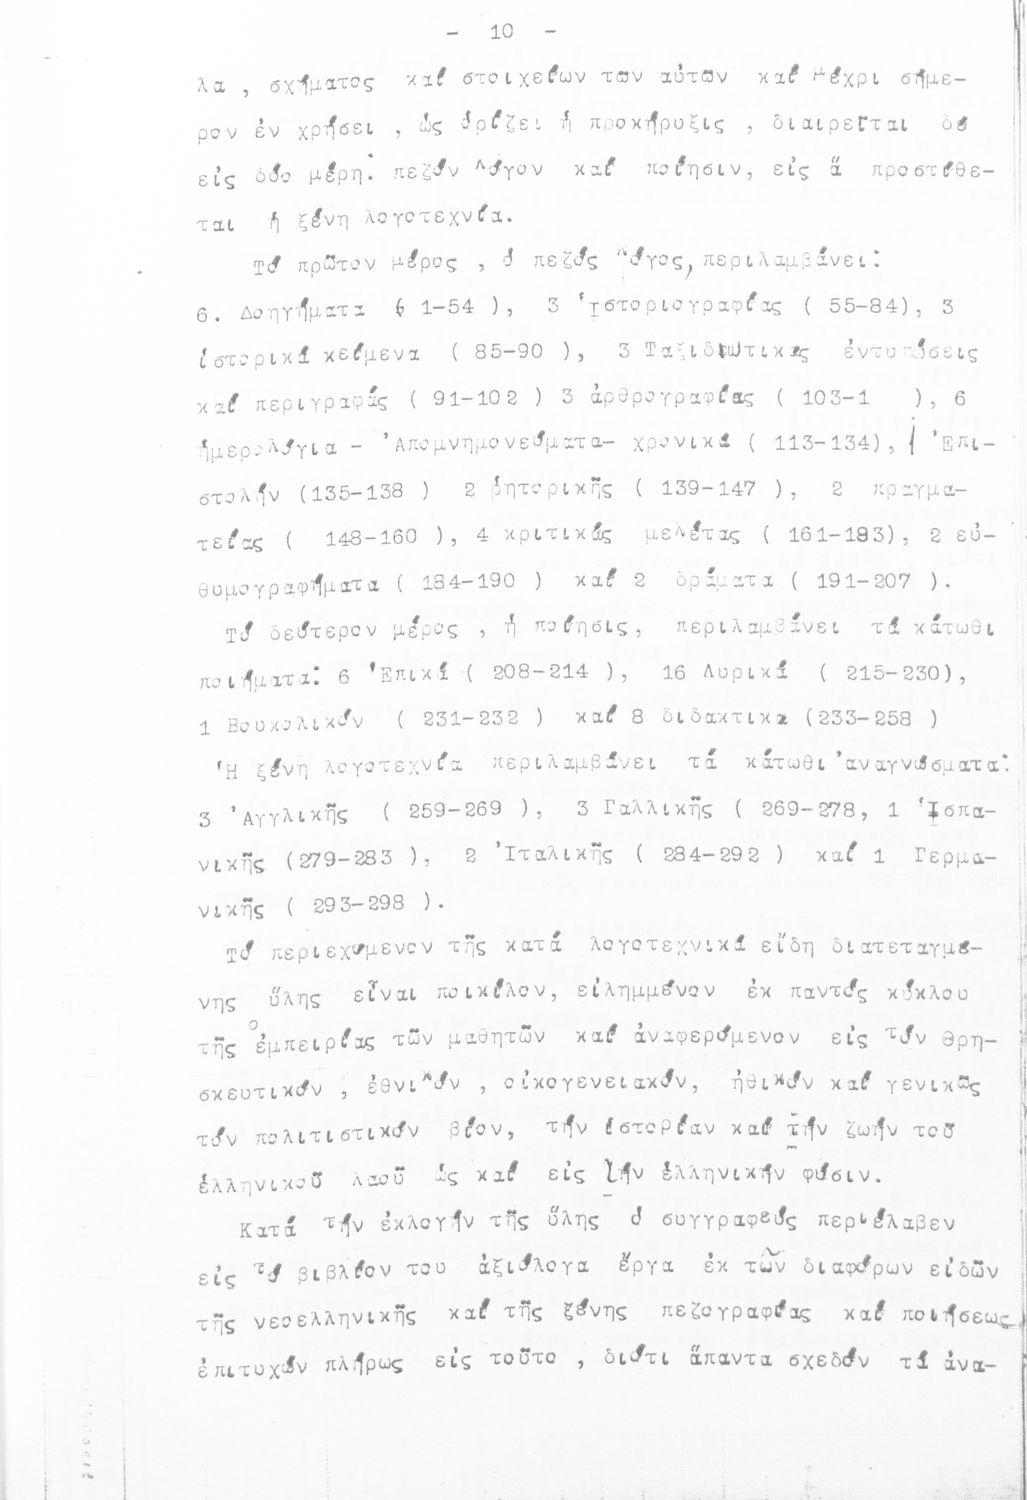 - 10 -
λα , σχήματος καί στοιχείων των αὐτῶν καί μέχρι σήμε-
ρον ἐν χρήσει , ὡς ὁρίζει ἡ προκήρυξις , διαιρεῖται δέ
εἰς δύο μέρη: πεζόν λόγον καί ποίησιν, εἰς ἅ προστίθε-
ται ἡ ξένη λογοτεχνία.
Τό πρῶτον μέρος , ὁ πεζός λόγος, περιλαμβάνει:
6. Διηγήματα ( 1-54 ), 3 Ἱστοριογραφίας ( 55-84), 3
ἱστορικά κείμενα ( 85-90 ), 3 Ταξιδιωτικάς ἐντυπώσεις
καί περιγραφάς ( 91-102 ) 3 ἀρθρογραφίας ( 103-1 ), 6
ἡμερολόγια - Ἀπομνημονεύματα- χρονικά ( 113-134), 1 Ἐπι-
στολήν (135-138 ) 2 ῥητορικῆς ( 139-147 ), 2 πραγμα-
τείας ( 148-160 ), 4 κριτικάς μελέτας ( 161-183), 2 εὐ-
θυμογραφήματα ( 184-190 ) καί 2 δράματα ( 191-207 ).
Τό δεύτερον μέρος , ἡ ποίησις, περιλαμβάνει τά κάτωθι
ποιήματα: 6 Ἐπικά ( 208-214 ), 16 Λυρικά ( 215-230),
1 Βουκολικόν ( 231-232 ) καί 8 διδακτικα (233-258 )
Ἡ ξένη λογοτεχνία περιλαμβάνει τά κάτωθι ἀναγνώσματα:
3 Ἀγγλικῆς ( 259-269 ), 3 Γαλλικῆς ( 269-278, 1 Ἱσπα-
νικῆς (279-283 ), 2 Ἰταλικῆς ( 284-292 ) καί 1 Γερμα-
νικῆς ( 293-298 ).
Τό περιεχόμενον τῆς κατά λογοτεχνικά εἴδη διατεταγμέ-
νης ὕλης εἶναι ποικίλον, εἰλημμένον ἐκ παντός κύκλου
τῆς ἐμπειρίας τῶν μαθητῶν καί ἀναφερόμενον εἰς τόν θρη-
σκευτικόν , ἐθνικόν , οἰκογενειακόν, ἠθικόν καί γενικῶς
τόν πολιτιστικόν βίον, τήν ἱστορίαν καί τήν ζωήν τοῦ
ἑλληνικοῦ λαοῦ ὡς καί εἰς τήν ἑλληνικήν φύσιν.
Κατά τήν ἐκλογήν τῆς ὕλης ὁ συγγραφεύς περιέλαβεν
εἰς τό βιβλίον του ἀξιόλογα ἔργα ἐκ τῶν διαφόρων εἰδῶν
τῆς νεοελληνικῆς καί τῆς ξένης πεζογραφίας καί ποιήσεως
ἐπιτυχών πλήρως εἰς τοῦτο , διότι ἅπαντα σχεδόν τά ἀνα-